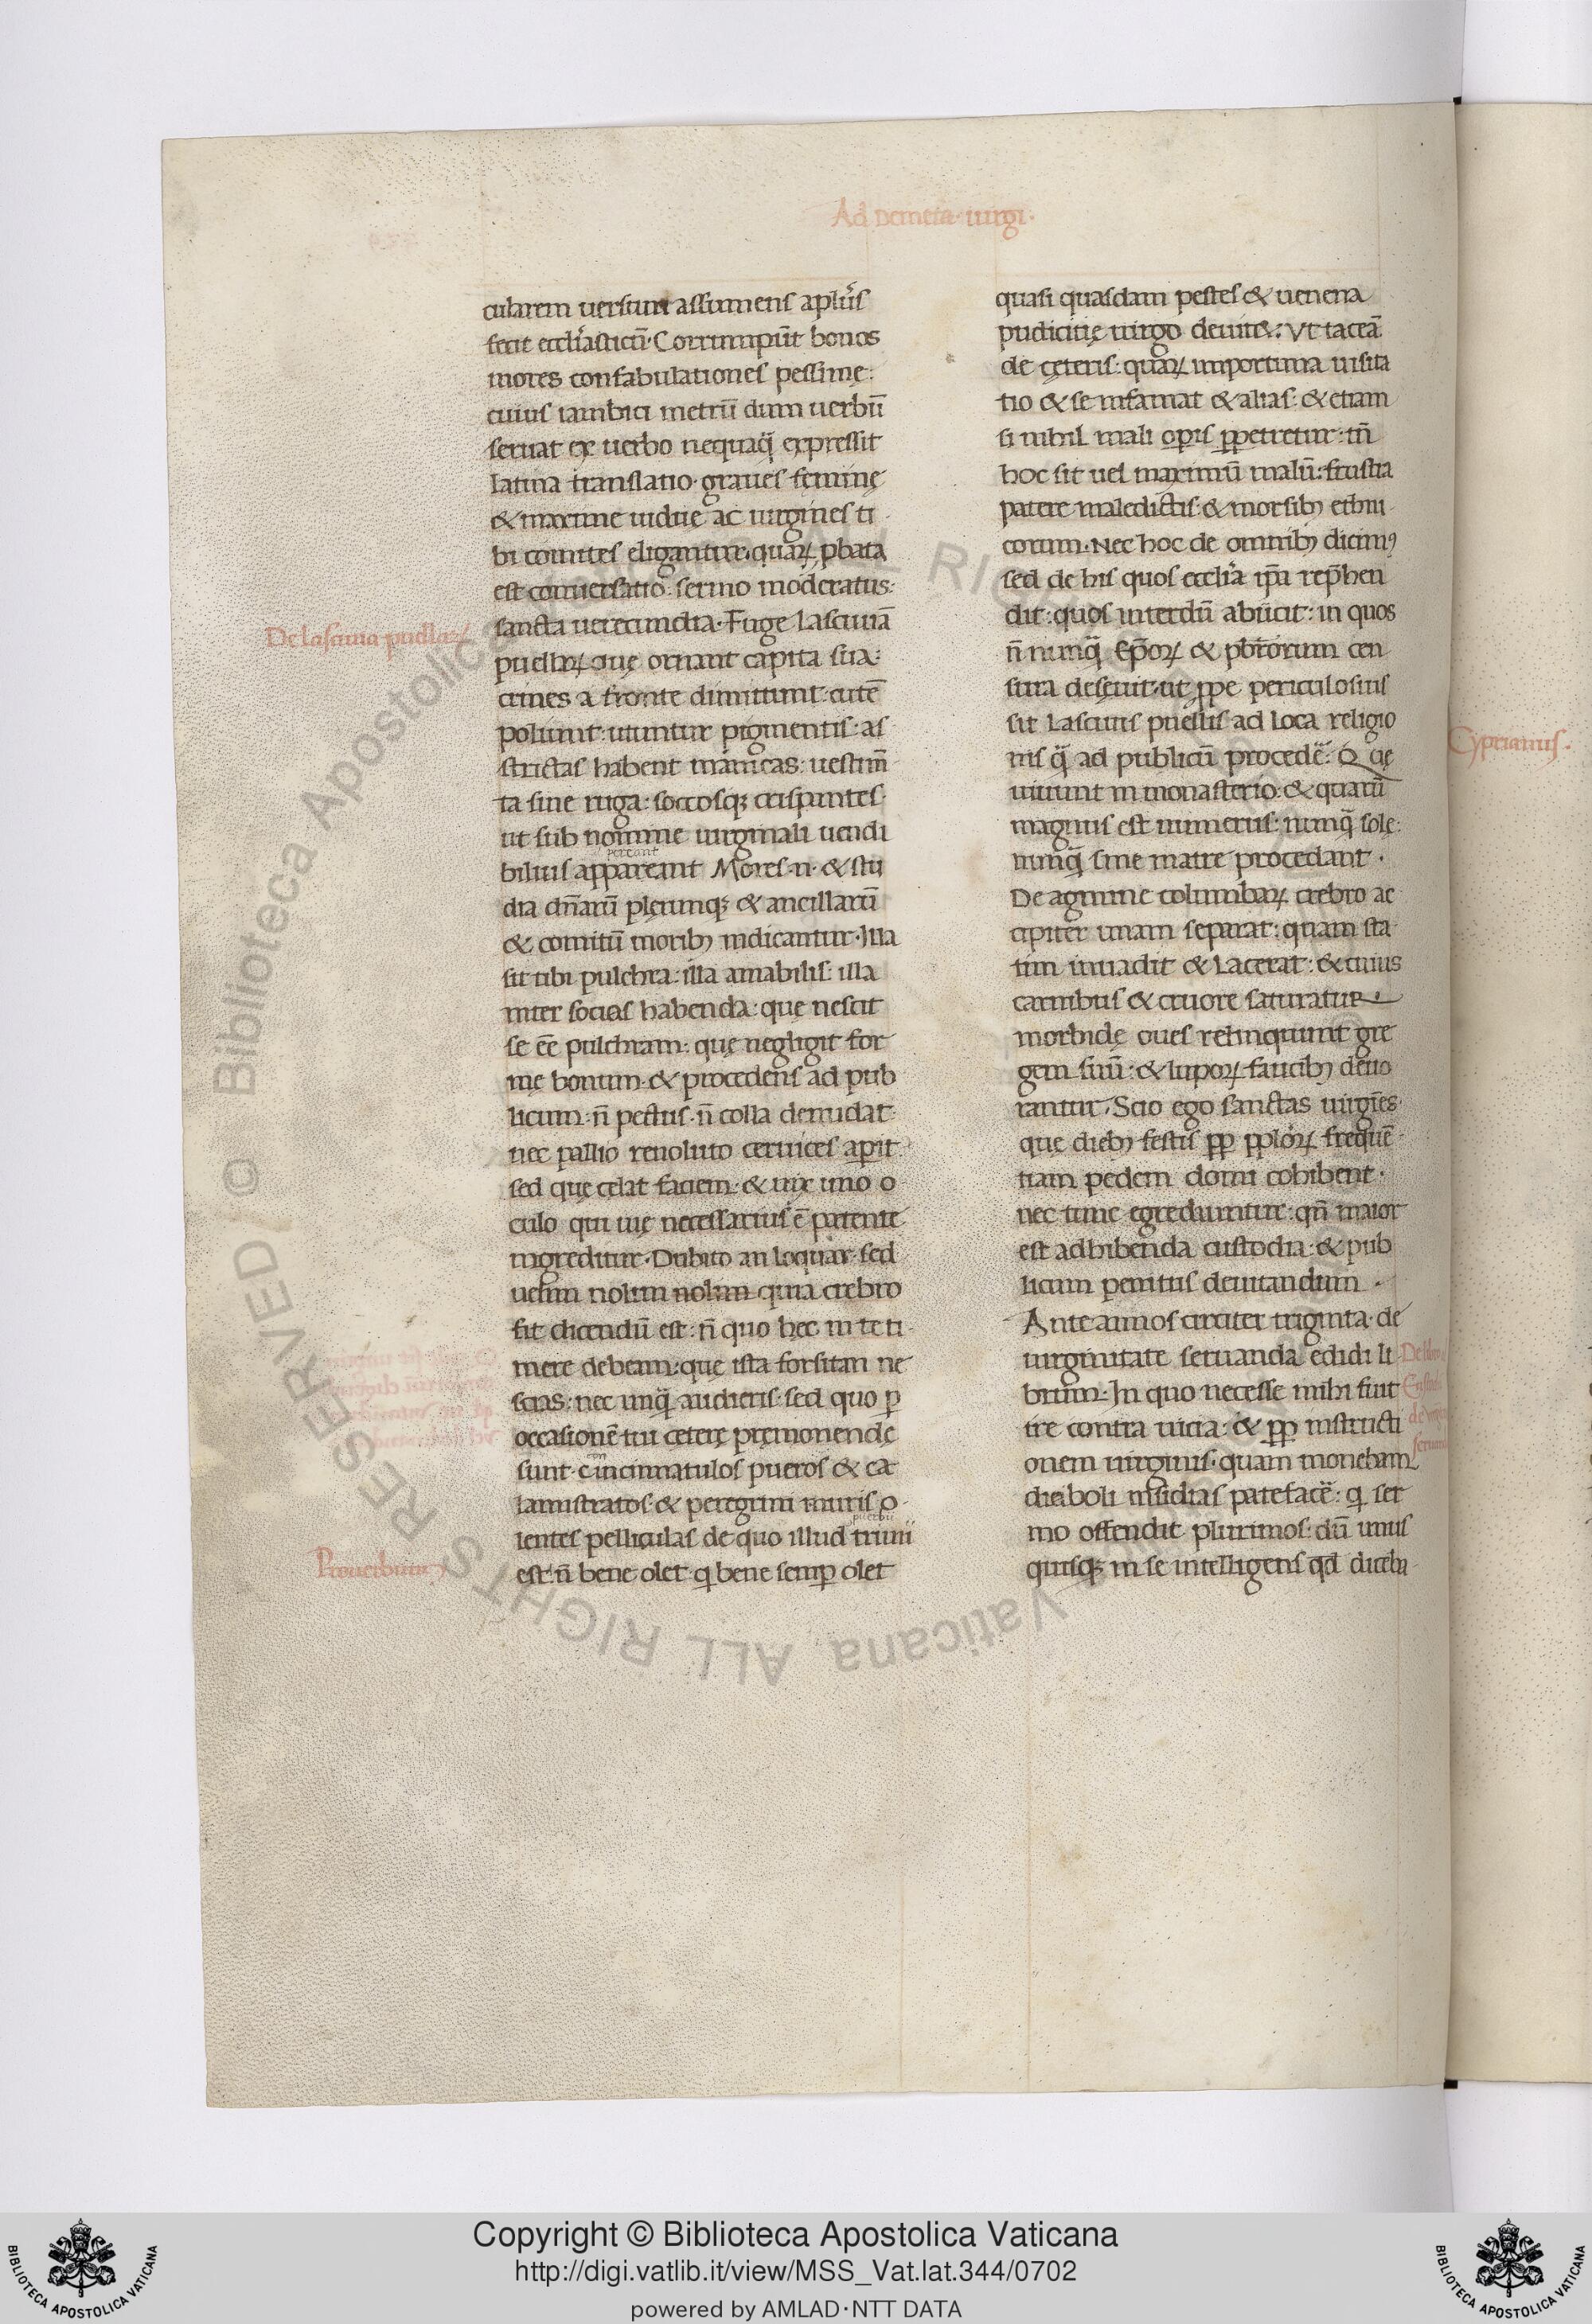 Ad Demeta· uirgi·
cularem uersum assumens apl̃us
fecit eccl̃iasticũ· Corrumpũt bonos
mores confabulationes pessimę:
cuius iambici metrũ dum uerbũ
seruat ex uerbo nequaq̃ expressit
latina translatio· graues feminę
& maxime uidue ac uirgines ti
bi comites eligantur· quarꝝ ꝓbata
est conuersatio: sermo moderatus:
sancta uerecundia· Fuge lasciuiã
De lasciuia puellarꝝ
puellarꝝ quę ornant capita sua:
crines a fronte dimittunt: cutẽ
poliunt: utuntur pigmentis: as
strictas habent manicas: uestim̃
ta sine ruga: soccosqꝫ crispantes·
ut sub nomine uirginali uendi
pereant
bilius appareant Mores·n· & stu
dia dñarũ plęrunqꝫ & ancillarũ
& comitũ moribꝫ iudicantur· Illa
sit tibi pulchra: illa amabilis: illa
inter socias habenda: que nescit
se ẽe pulchram: quę negligit for
mę bonum· & procedens ad pub
licum· ñ pectus· ñ colla denudat·
nec pallio reuoluto ceruices aꝑit·
sed quę celat faciem· & uix uno o
culo qui uię necessarius ẽ patente
ingreditur· Dubito an loquar· sed
uelim nolim nolim quia crebro
fit dicendũ est: ñ quo hec in te ti
mere debeam: quę ista forsitan ne
scias: nec unq̃ audieris· sed quo ꝑ
occasionẽ tui ceterę pręmonendę
sunt· cincinnatulos pueros & ca
lamistratos· & peregrini muris o·
puerbiũ
lentes pelliculas de quo illud triuii
est: ñ bene olet qͥ bene semꝑ olet
Prouerbium
quasi quasdam pestes & uenena
pudicitię uirgo deuite&: Ut taceã
de cęteris: quarꝝ importuna uisita
tio & se infamat & alias: & etiam
si nihil mali oꝑis ꝑpetretur: tñ
hoc sit uel maximũ malũ: frustra
patere maledictis· & morsibꝫ ethni
corum· Nec hoc de omnibꝫ dicimꝰ
sed de his quos eccl̃ia ip̃a rep̃hen
dit: quos interdũ abiicit: in quos
ñ nunq̃ ep̃orꝝ & pbr̃orum cen
sura desęuit· ut ꝓpe periculosius
sit lasciuis puellis ad loca religio
nis q̃ ad publicũ procedẽ: Q ue
Cyprianus·
uiuunt in monasterio· & quarũ
magnus est numerus: nunq̃ solę:
nunq̃ sine matre procedant·
De agmine columbarꝝ crebro ac
cipiter unam separat: quam sta
tim inuadit & lacerat: & cuius
carnibus & cruore saturatur
morbidę oues relinquunt gre
gem suũ: & luporꝝ faucibꝫ deuo
rantur· Scio ego sanctas uirgines·
que diebꝫ festis ꝓp̱ pp̱lorꝝ frequẽ
tiam pedem domi cohibent·
nec tunc egrediuntur: qñ maior
est adhibenda custodia: & pub
licum penitus deuitandum·
Ante annos circiter triginta· de
uirginitate seruanda edidi li
brum· In quo necesse mihi fuit
ire contra uicia: & ꝓp̱ instructi
onem uirginis· quam monebam
diaboli insidias patefacẽ: qͥ ser
mo offendit plurimos: dũ unus
quisqꝫ in se intelligens qd̃ diceba
Copyright © Biblioteca Apostolica Vaticana
http://digi.vatlib.it/view/MSS_Vat.lat.344/0702
powered by AMLAD·NTT DATA
BIBLIOTECA APOSTOLICA VATICANA
BIBLIOTECA APOSTOLICA VATICANA
© Biblioteca Apostolica Vaticana ALL RIGHTS RESERVED